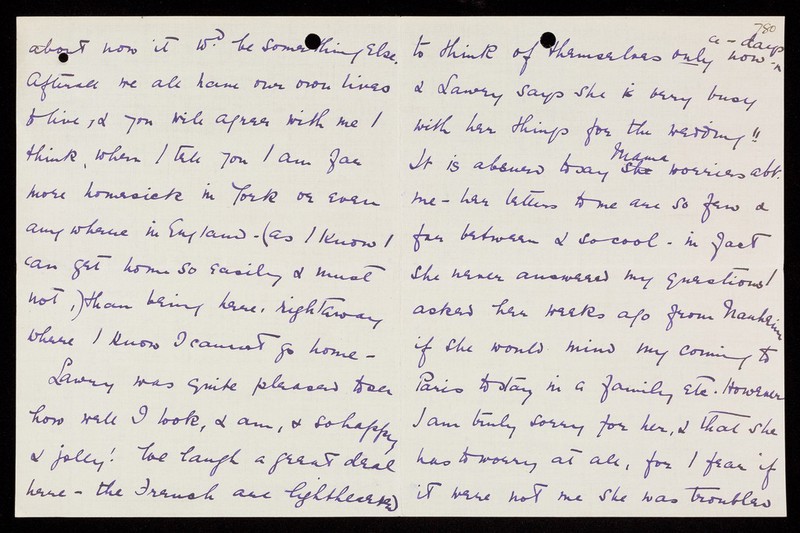 about now it wd. be something else.
Afterall we all have our own lives
to live, & you will agree with me I
think, when I tell you I am far
more homesick in York or even
anywhere in England - (as I know I
can get home so easily & must
not,) than being here, right away
where I know I cannot go home -
Lawry was quite pleased to see
how well I look, & am, & so happy
& jolly! We laugh a great deal
here - the French are lighthearted
780
to think of themselves only now-a-days
& Lawry says she is very busy
with her things for the wedding!!
It is absurd to say she Mama worries abt.
me - her letters to me are so few &
far between & so cool - in fact
she never answered my questions I
asked her weeks ago from Nauheim
if she would mind my coming to
Paris to stay in a family etc. However
I am truly sorry for her, & that she
has to worry at all, for I fear if
it were not me she was troubled